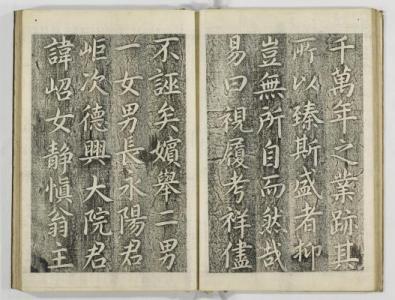 千萬年之業跡其
所以臻斯盛者抑
豈無所自而然哉
易曰視履考祥儘
不誣矣嬪舉二男
一女男長永陽君
岠次德興大院君
諱岹女静慎翁主